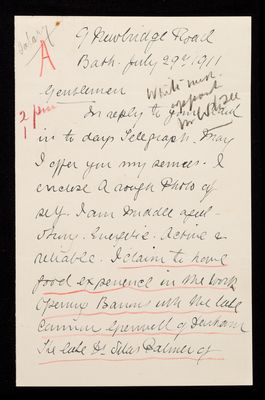 Salary
A
9 Newbridge Road
Bath. July 29th 1911
Gentlemen
Write must
appoint
for Wd see
2 pm
1
In reply to your advt
in to days Telegraph. May
I offer you my services. I
enclose a rough Photo of
self. I am middle aged
strong. Energetic. Active &
reliable. I claim to have
good experience in the work
opening Barrows with the late
Cannon Greenwell of Durham
The late Dr Silas Palmer of